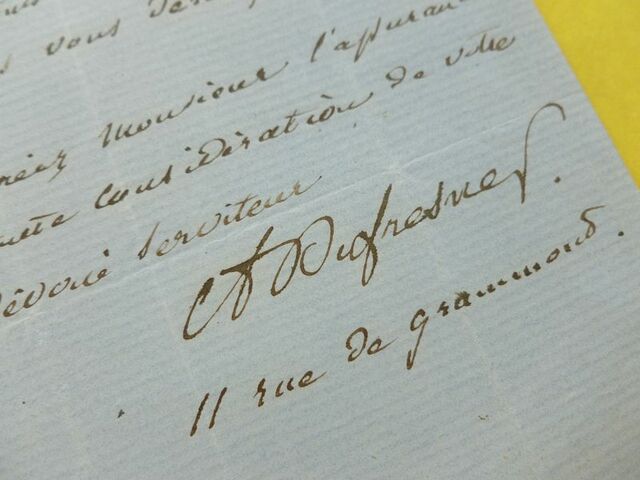 vous
réez Monsieur l'assuran
considération de votre
dévoué serviteur
Dufresne
11 rue de grammond.